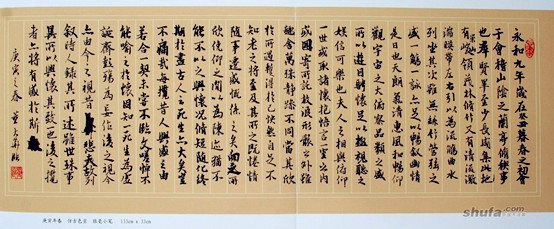 永和九年歲在癸丑暮春之初會
于會稽山陰之蘭亭脩稧事
也羣賢畢至少長咸集此地
有崇山峻領茂林脩竹又有清流激
湍暎帶左右引以為流觴曲水
列坐其次雖無絲竹管弦之
盛一觴一詠亦足以暢敘幽情
是日也天朗氣清惠風和暢仰
觀宇宙之大俯察品類之盛
所以遊目騁懷足以極視聽之
娛信可樂也夫人之相與俯仰
一世或取諸懷抱悟言一室之內
或因寄所託放浪形骸之外雖
趣舍萬殊靜躁不同當其欣
於所遇蹔得於己快然自足不
知老之將至及其所之既惓情
隨事遷感慨係之矣向之所
欣俛仰之閒以為陳迹猶不
能不以之興懷況脩短隨化終
期於盡古人云死生亦大矣豈
不痛哉每攬昔人興感之由
若合一契未嘗不臨文嗟悼不
能喻之於懷固知一死生為虛
誕齊彭殤為妄作後之視今
亦由今之視昔悲夫故列
敘時人錄其所述雖世殊事
異所以興懷其致一也後之攬
者亦將有感於斯
庚寅之春
庚寅年春 仿古色宣 狼毫小笔 135cm x 35cm
shufa.com